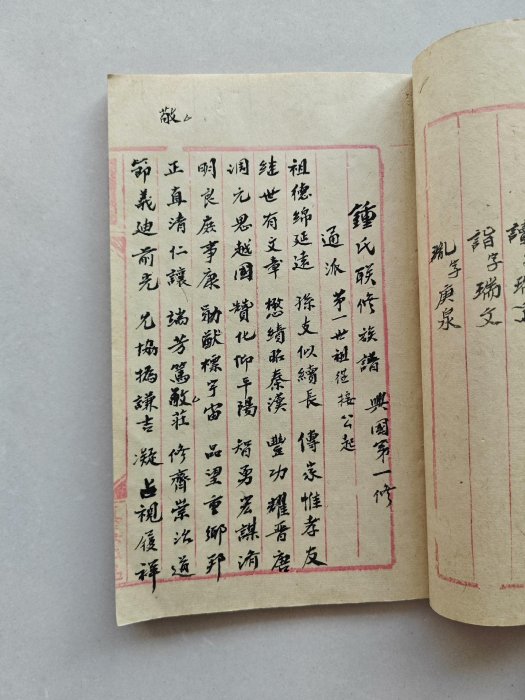 詣字瑞文
珖字庚泉
敬
鍾氏聯修族譜 興國第一修
通派 第一世祖從接公起
祖德綿延遠 孫支似續長 傳家惟孝友
继世有文章 懋績昭秦漢 豐功耀晋唐
润元思越國 贊化仰平陽 智勇宏謀済
明良庭事康 勛猷標宇宙 品望重鄉邦
正直清仁讓 端芳篤敬莊 修齊崇治道
節義廸前光 允協撝謙吉 凝占視履祥